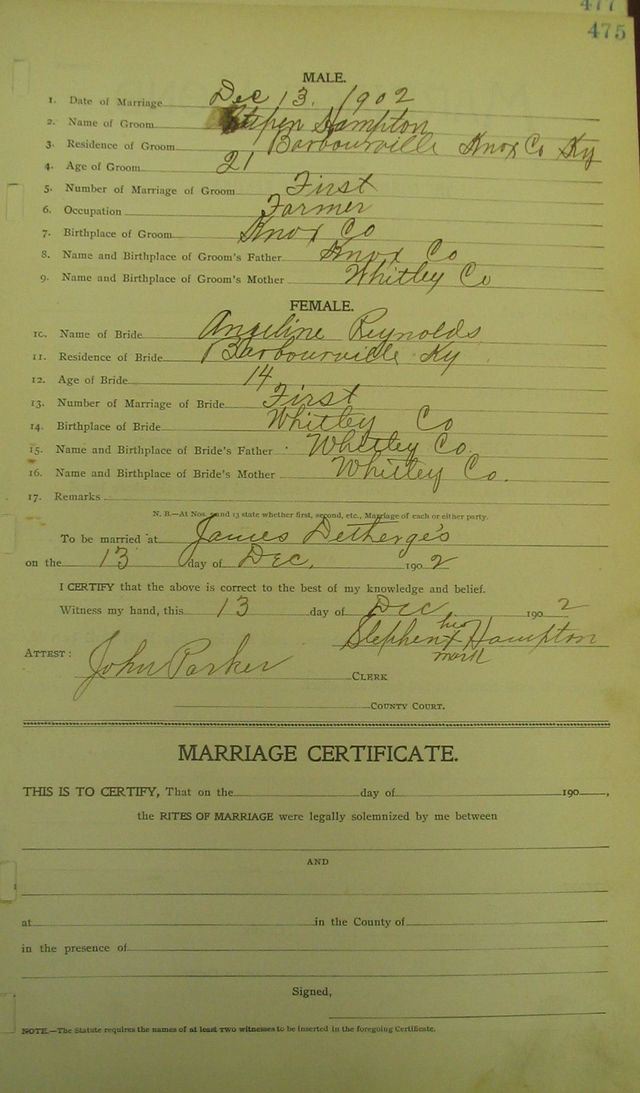 477
475
MALE.
1. Date of Marriage Dec 13. 1902
2. Name of Groom Stepen Hampton
3. Residence of Groom Barbourville Knox Co Ky
4. Age of Groom 21
5. Number of Marriage of Groom First
6. Occupation Farmer
7. Birthplace of Groom Knox Co
8. Name and Birthplace of Groom's Father Knox Co
9. Name and Birthplace of Groom's Mother Whitley Co
FEMALE.
10. Name of Bride Angeline Reynolds
11. Residence of Bride Barbourville Ky
12. Age of Bride 14
13. Number of Marriage of Bride First
14. Birthplace of Bride Whitley Co
15. Name and Birthplace of Bride's Father Whitley Co.
16. Name and Birthplace of Bride's Mother Whitley Co.
17. Remarks
N. B.—At Nos. and 13 state whether first, second, etc., Marriage of each or either party.
To be married at James Detherge's
on the 13 day of Dec. 1902
I CERTIFY that the above is correct to the best of my knowledge and belief.
Witness my hand, this 13 day of Dec 1902
Stephen his x mark Hampton
ATTEST: John Parker CLERK
COUNTY COURT.
MARRIAGE CERTIFICATE.
THIS IS TO CERTIFY, That on the day of 190 ,
the RITES OF MARRIAGE were legally solemnized by me between
AND
at in the County of
in the presence of
Signed,
NOTE.—The Statute requires the names of at least two witnesses to be inserted in the foregoing Certificate.